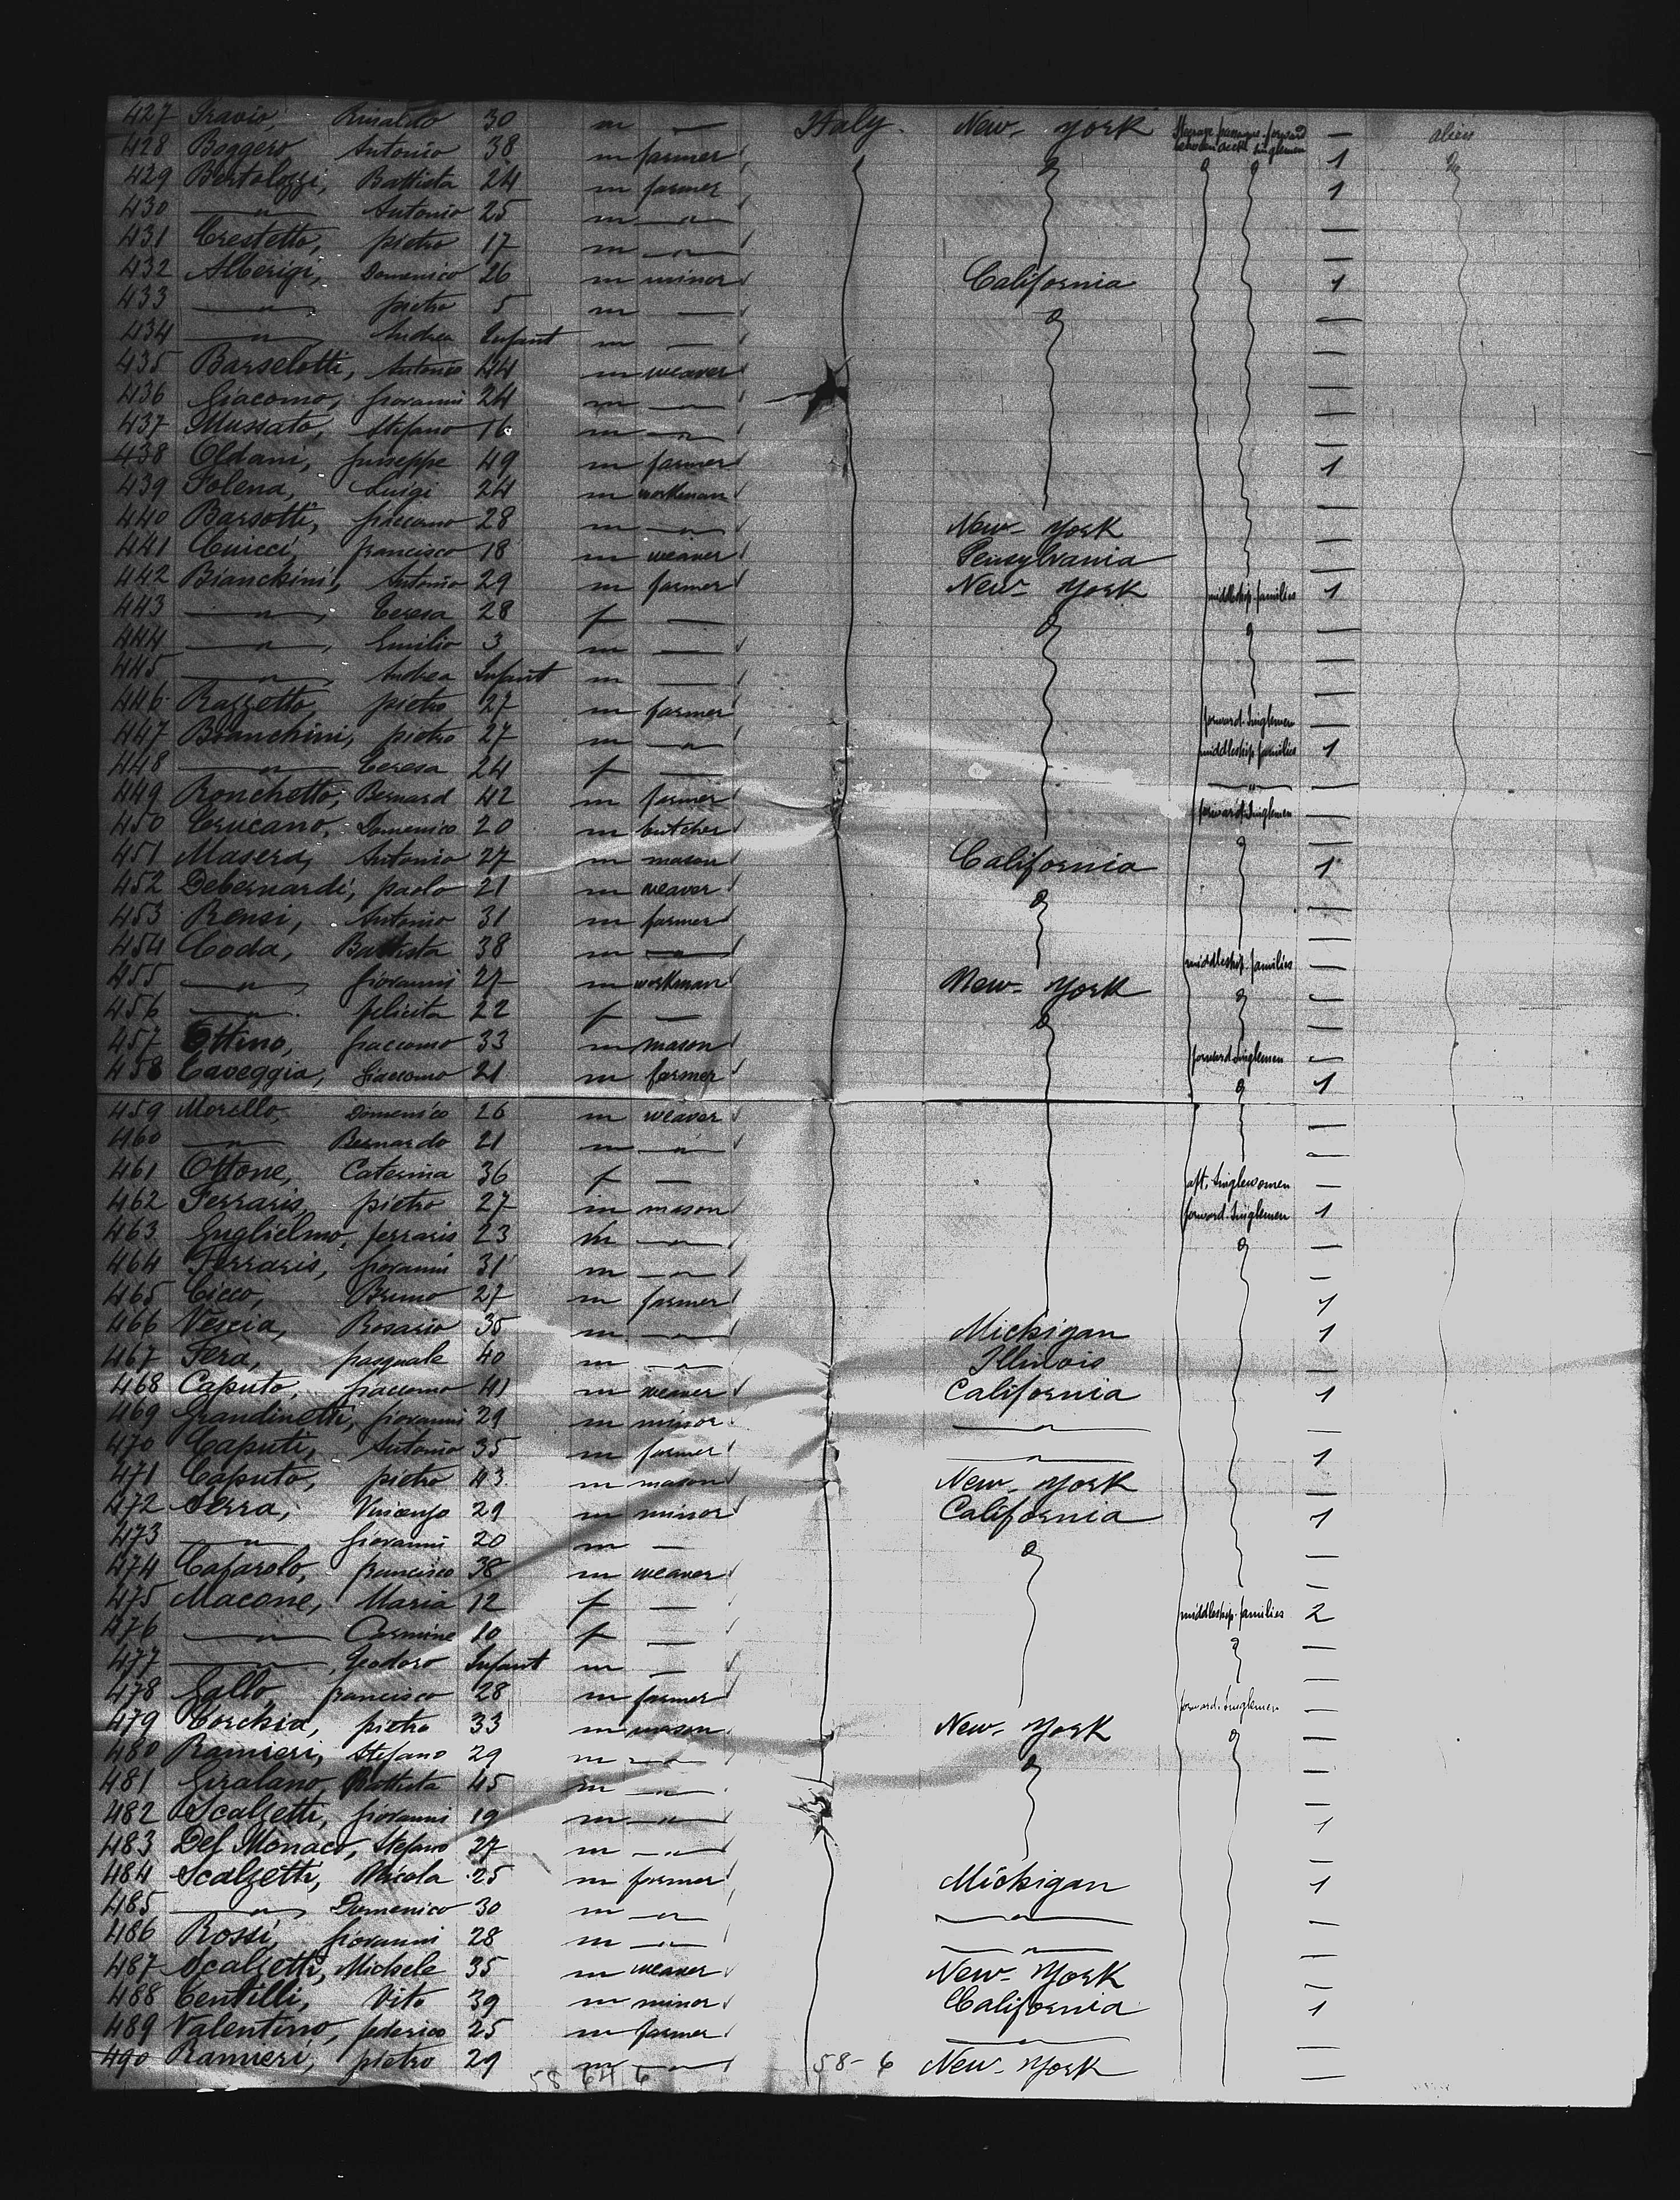 427 Travio, Rinaldo 30 m — Italy. New-York Steerage passagen forward between decks singlemen — alien
428 Boggero Antonio 38 m farmer 1
429 Bertolozzi, Battista 24 m farmer 1
430 —"— Antonio 25 m —"— —
431 Crestetto, pietro 17 m —"— —
432 Alberigi, Domenico 26 m minor California 1
433 —"— pietro 5 m — —
434 —"— Andrea Infant m — —
435 Barselotti, Antonio 44 m weaver —
436 Giacomo, giovanni 24 m —"— —
437 Mussato, Stefano 16 m —"— —
438 Oldani, giuseppe 49 m farmer 1
439 Polena, Luigi 24 m workman —
440 Barsotti, giaccomo 28 m —"— New-York —
441 Cuicci, francisco 18 m weaver Pensylvania —
442 Bianchini, Antonio 29 m farmer New-York middleship families 1
443 —"—, Ceresa 28 f — —
444 —"—, Emilio 3 m — —
445 —"—, Andrea Infant m — —
446 Razzetto, pietro 27 m farmer forward singlemen —
447 Bianchini, pietro 27 m —"— middleship families 1
448 —"— Ceresa 24 f — —"— —
449 Ronchetto, Bernard 42 m farmer forward singlemen —
450 Crucano, Domenico 20 m butcher —
451 Masera, Antonio 27 m mason California 1
452 Debernardi, paolo 21 m weaver —
453 Rensi, Antonio 31 m farmer —
454 Coda, Battista 38 m —"— middleship families —
455 —"—, giovanni 27 m workman New-York —
456 —"—. felicita 22 f — —
457 Ottino, giaccomo 33 m mason forward singlemen —
458 Caveggia, Giaccomo 21 m farmer 1
459 Morello, Domenico 26 m weaver —
460 —"— Bernardo 21 m —"— —
461 Ottone, Caterina 36 f — aft, singlewomen —
462 Ferraris, pietro 27 m mason forward singlemen 1
463 Guglielmo, ferraris 23 m —"— —
464 Ferraris, giovanni 31 m —"— —
465 Cicco, Bruno 27 m farmer 1
466 Vescia, Rosario 35 m —"— Michigan 1
467 Fera, pasquale 40 m —"— Illinois —
468 Caputo, giaccomo 41 m weaver California 1
469 Grandinetti, giovanni 29 m minor —"— —
470 Caputi, Antonio 35 m farmer —"— 1
471 Caputo, pietro 43 m mason New-York —
472 Serra, Vincenzo 29 m minor California 1
473 —"— giovanni 20 m — —
474 Cafarolo, francisco 38 m weaver —
475 Macone, Maria 12 f — middleship families 2
476 —"— Carmine 10 f — —
477 —"—, Geodoro Infant m — —
478 Gallo, francisco 28 m farmer forward singlemen —
479 Corchia, pietro 33 m mason New-York —
480 Ramieri, Stefano 29 m —"— —
481 Giralano, Battista 45 m —"— —
482 Scalzetti, giovanni 19 m —"— 1
483 Del Monaco, Stefano 27 m —"— —
484 Scalzetti, Nicola 25 m farmer Michigan 1
485 —"—, Domenico 30 m —"— —"— —
486 Rossi, giovanni 28 m —"— —"— —
487 Scalzetti, Michele 35 m weaver New-York —
488 Centilli, Vito 39 m minor California 1
489 Valentino, federico 25 m farmer —"— —
490 Ramieri, pietro 29 m —"— New-York —
58 64 6 58-6